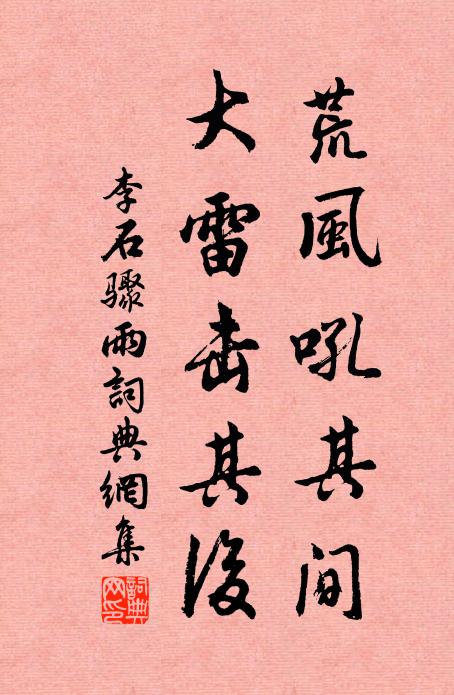 荒風吼其间
大雷击其後
李石驟雨詞典網集
詞典网印